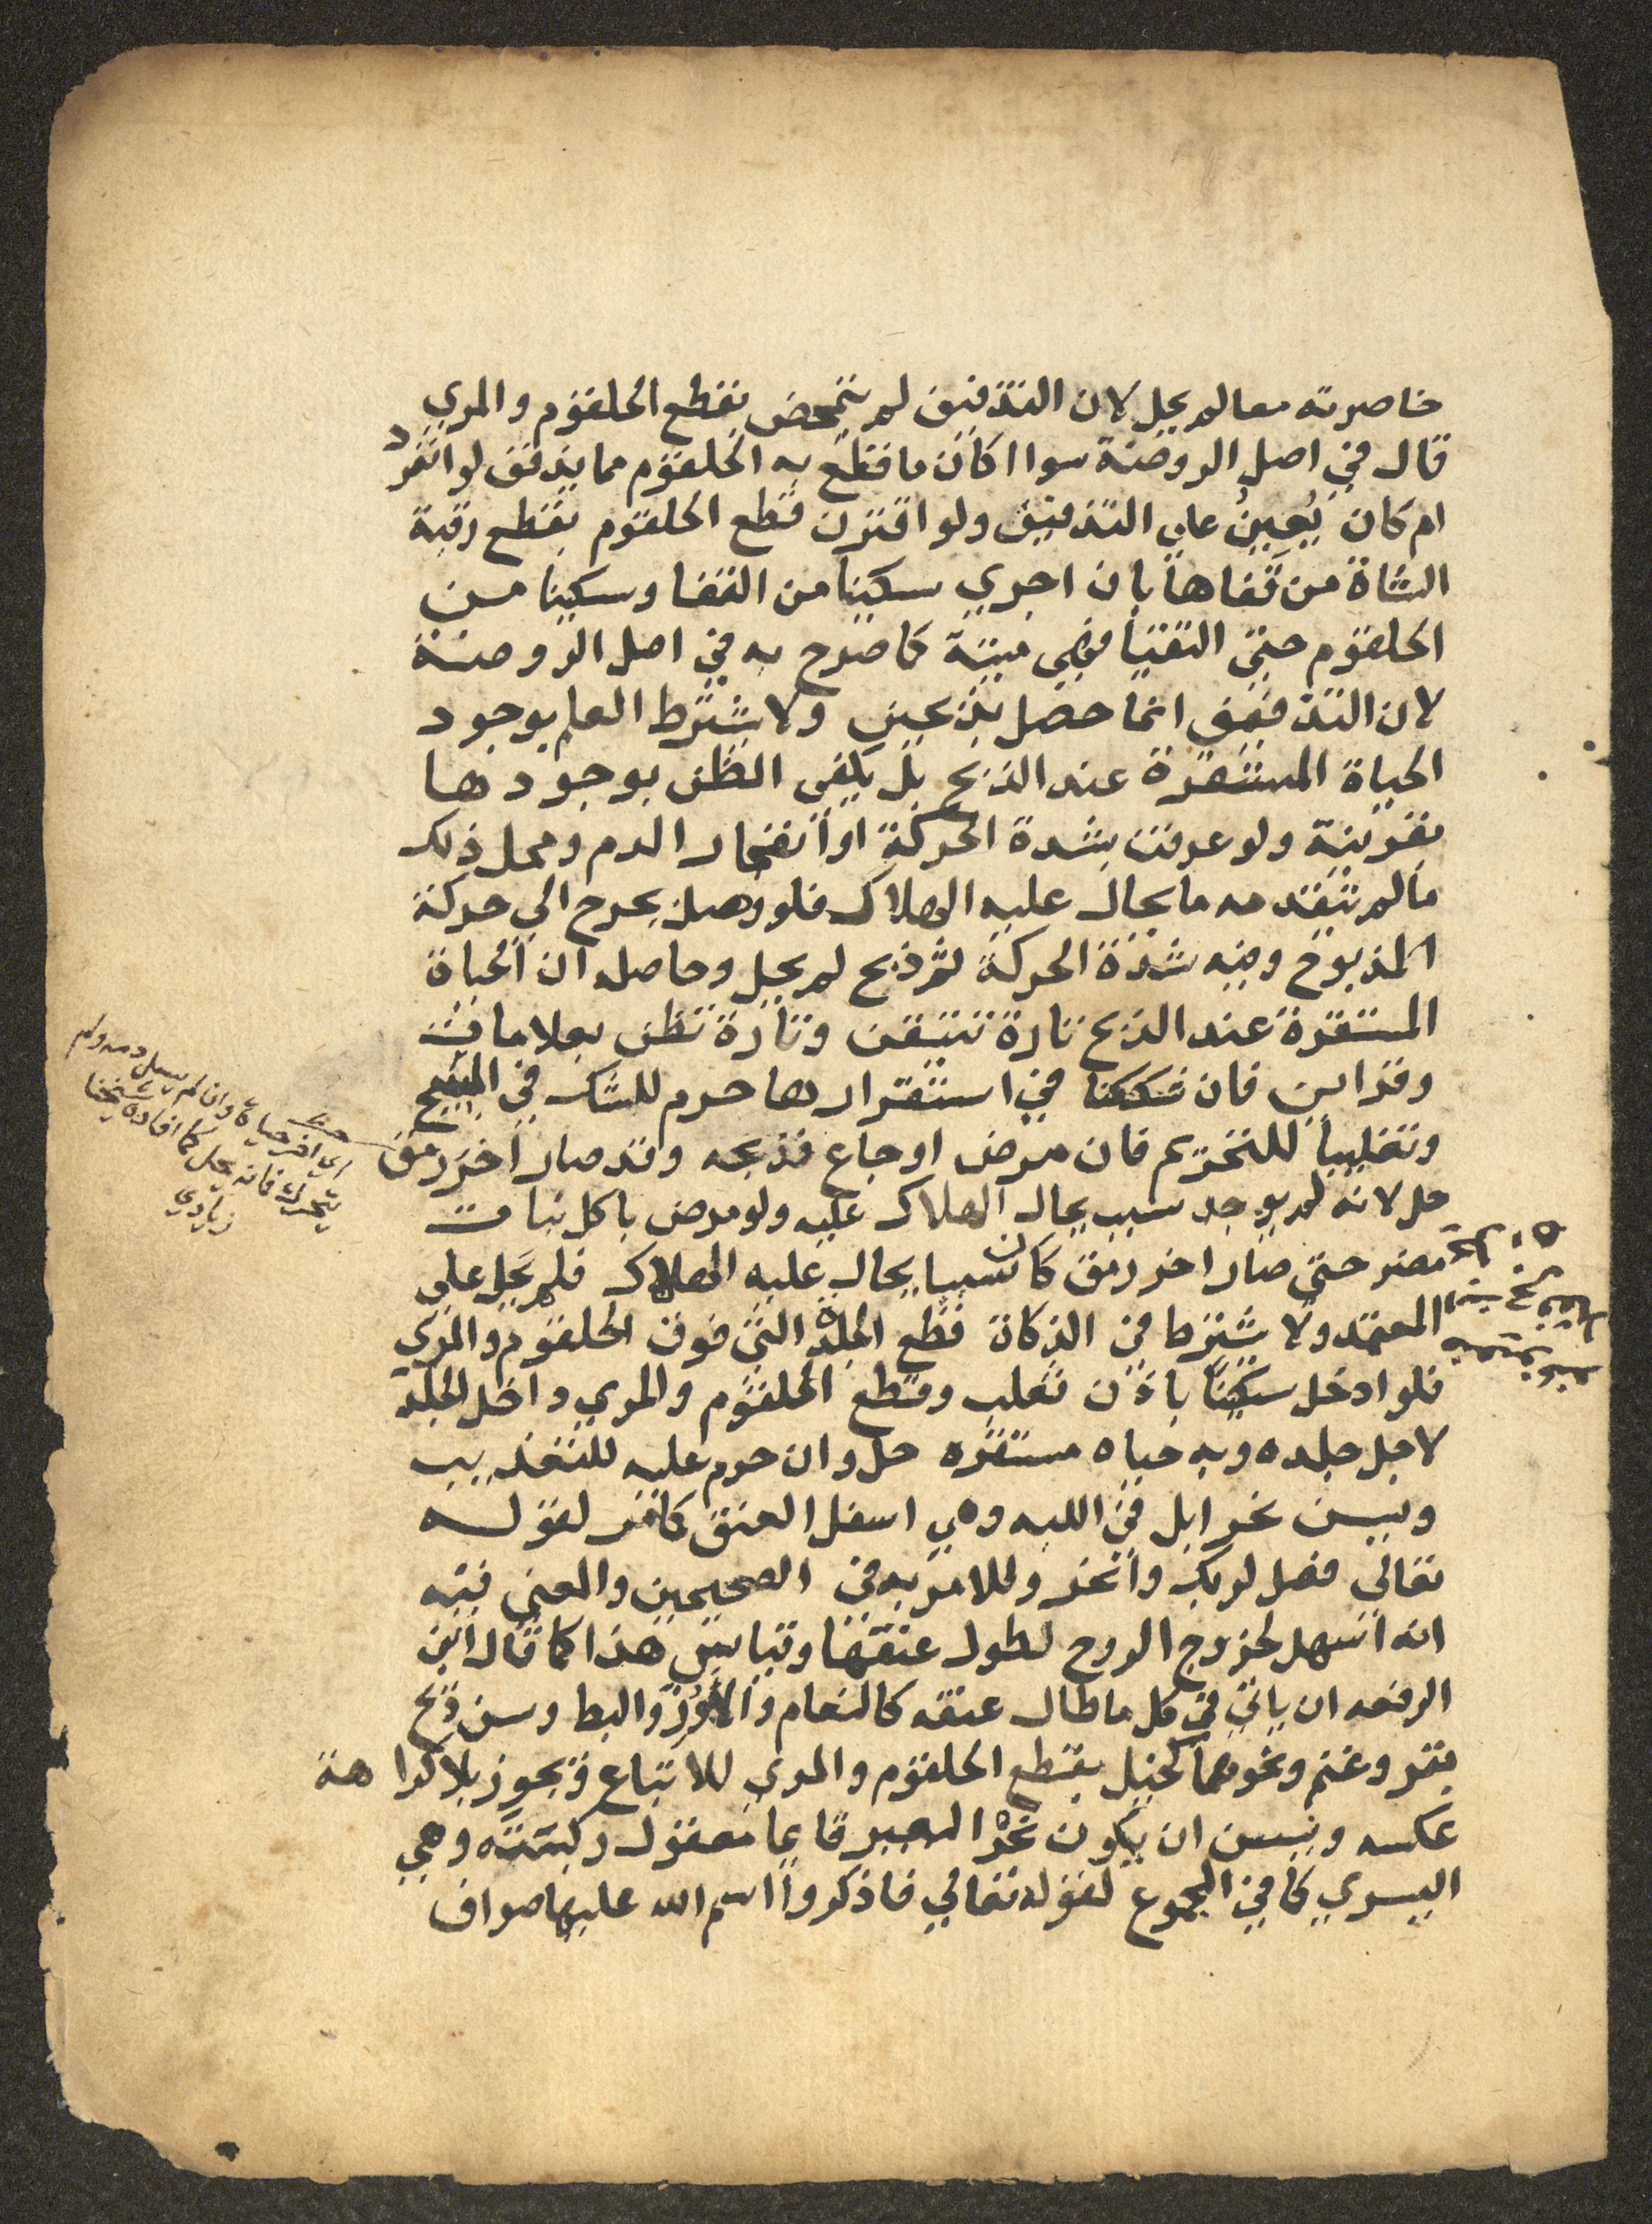 خاصرته معا لم يحل لان التذفيف لم يتمحض بقطع الحلقوم والمري
قال في اصل الروضة سوا اكان ما قطع به الحلقوم مما يذفف لو انفرد
ام كان يُعِينُ علي التذفيف ولو اقترن قطع الحلقوم بقطع رقبة
الشاة من قَفاها بان اجري سكينا من القفا وسكينا من
الحلقوم حتي التقيا فهي ميتة كما صرح به في اصل الروضة
لان التذفيف انما حصل بذبحين ولا يشترط العلم بوجود
الحياة المستقرة عند الذبح بل يكفي الظن بوجودها
بقرينة ولو عرفت بشدة الحركة او انفجار الدم ومحل ذلك
ما لم يتقدمه ما يحال عليه الهلاك فلو وصل بجرح الي حركة
المذبوح وفيه شدة الحركة ثم ذبح لم يحل وحاصله ان الحياة
المستقرة عند الذبح تارة تتيقن وتارة تظن بعلامات
وقراين فان شككنا في استقرارها حرم للشك في المبيح
وتغليبا للتحريم فان مرض او جاع فذبحه وقد صار اخر رمق
حل لانه لم يوجد سبب يحال الهلاك عليه ولو مرض باكل نبات
مضر حتي صار اخر رمق كان سببا يحال عليه الهلاك فلم يَحِل علي
المعتمد ولا يشترط في الذكاة قطع الجلدة التي فوق الحلقوم والمري
فلو ادخل سكينا باذن ثعلب وقطع الحلقوم والمري داخل الجلد
لاجل جلده وبه حياه مستقره حل وان حرم عليه للتعذيب
ويسن نحر ابل في اللبه وهي اسفل العنق كما مر لقوله
تعالي فصل لربك وانحر وللامر به في الصحيحين والمعني فيه
انه اسهل لخروج الروح لطول عنقها وقياس هذا كما قال ابن
الرفعه ان ياتي في كل ما طال عنقه كالنعام والاوُزّ والبط وسن ذبح
بقر وغنم ونحوهما كخيل بقطع الحلقوم والمري للاتباع ويجوز بلا كراهة
عكسه ويسن ان يكون نحْر البعير قايما معقول ركبته وهي
اليسري كما في المجموع لقوله تعالي فاذكروا اسم الله عليها صواف
اي اخر حياة وان لم يسل دمه ولم
يتحرك فانه يحل كما افاده شيخنا
زيادي